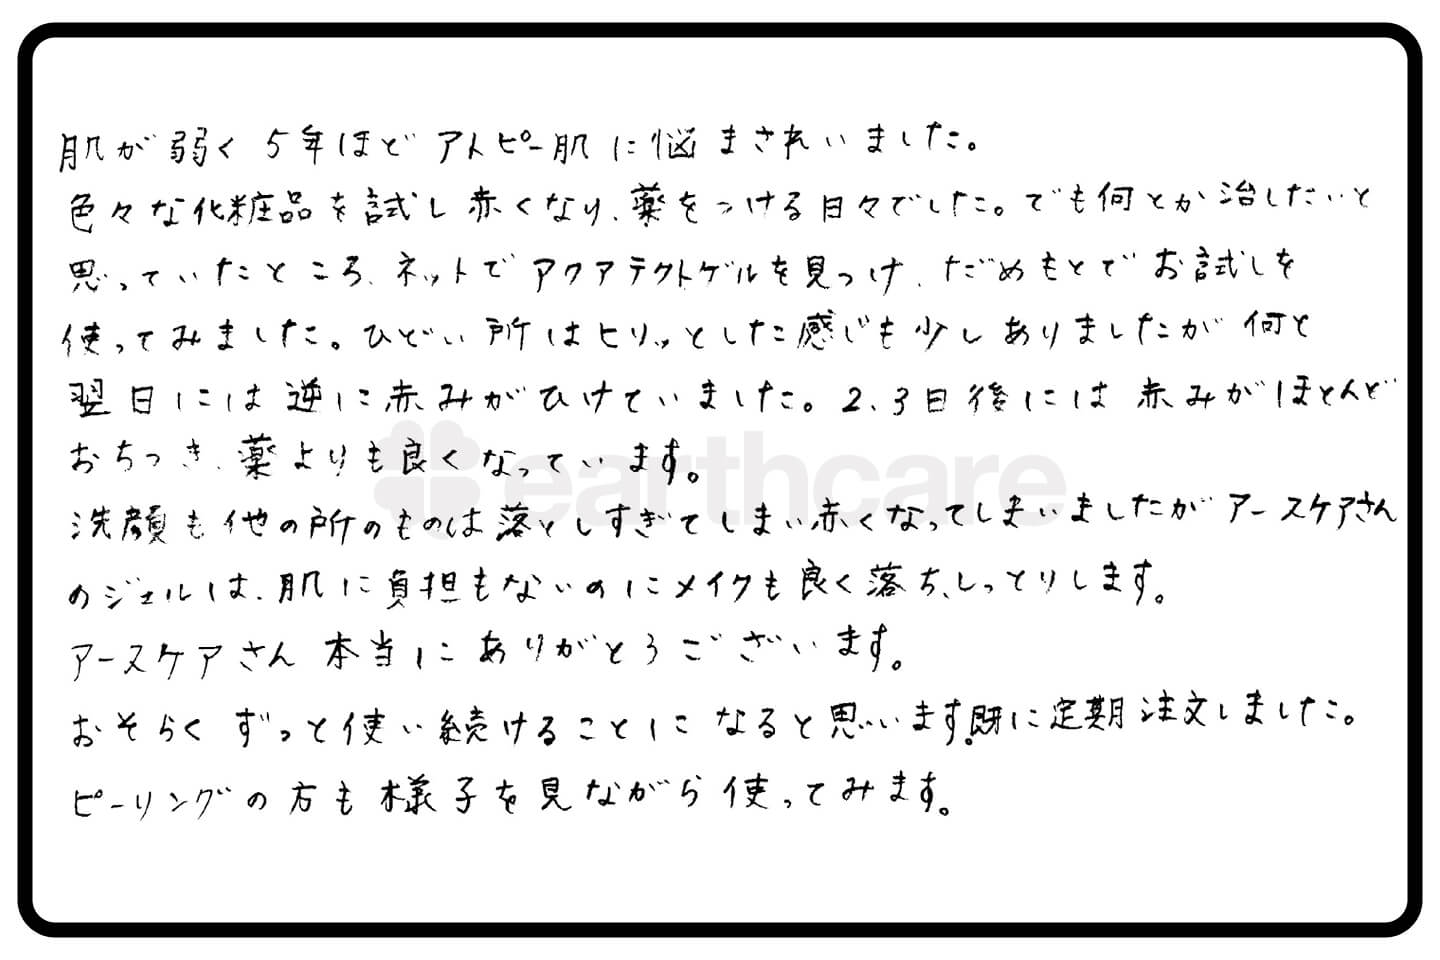 肌が弱く5年ほどアトピー肌に悩まされいました。
色々な化粧品を試し赤くなり、薬をつける日々でした。でも何とか治したいと
思っていたところ、ネットでアクアテクトゲルを見つけ、だめもとでお試しを
使ってみました。ひどい所はヒリッとした感じも少しありましたが何と
翌日には逆に赤みがひけていました。2、3日後には赤みがほとんど
おちつき、薬よりも良くなっています。
earthcare
洗顔も他の所のものは落としすぎてしまい赤くなってしまいましたがアースケアさん
のジェルは、肌に負担もないのにメイクも良く落ち、しっとりします。
アースケアさん本当にありがとうございます。
おそらくずっと使い続けることになると思います。既に定期注文しました。
ピーリングの方も様子を見ながら使ってみます。